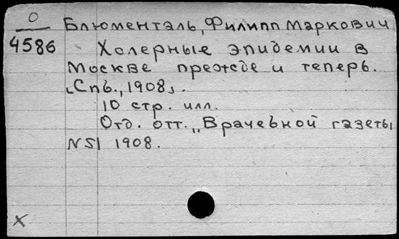 О
4586
Блюменталь, Филипп Маркович
Холерные эпидемии в
Москве прежде и теперь.
[Спб., 1908].
10 стр. илл.
Отд. отт. „Врачебной газеты
NS1 1908.
X